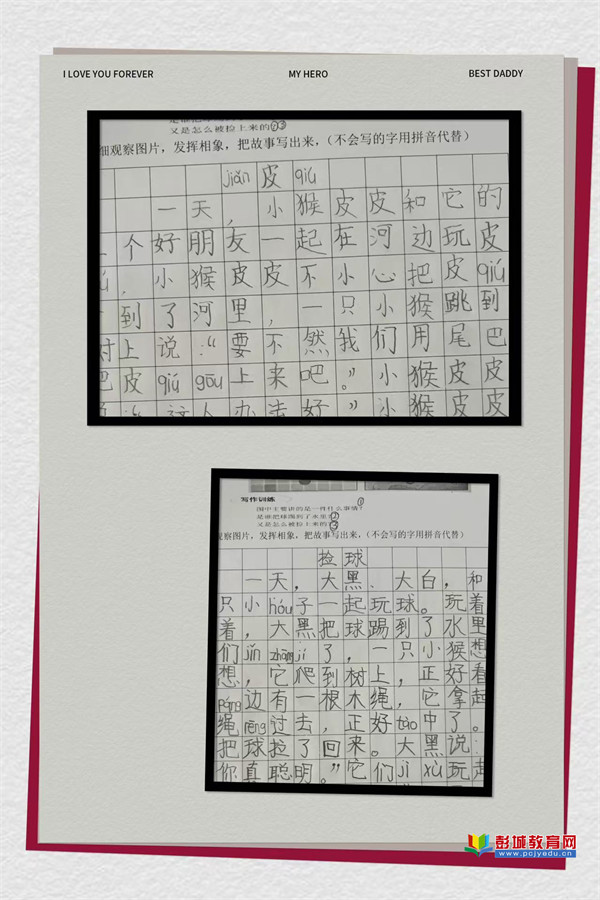 I LOVE YOU FOREVER
MY HERO
BEST DADDY
又是怎么被捡上来的②③
细观察图片，发挥相象，把故事写出来，（不会写的字用拼音代替）
jiǎn 皮 qiú
一天，小猴皮皮和它的
个好朋友一起在河边玩皮
，小猴皮皮不小心把皮qiú
到了河里，一只小猴跳到
上说：“要不然我们用尾巴
把皮qiú gōu上来吧。”小猴皮皮
这个办法好”小猴皮皮
写作训练
图中主要讲的是一件什么事情？①
是谁把球踢到了水里？②
又是怎么被捡上来的③
观察图片，发挥相象，把故事写出来，（不会写的字用拼音代替）
捡球
一天，大黑、大白，和
只小hóu子一起玩球。玩着
着，大黑把球踢到了水里
们jǐn zhāng jí了，一只小猴想
想，它爬到树上，正好看
páng边有一根木绳，它拿起
绳rēng过去，正好tào中了。
把球拉了回来。大黑说：
你真聪明。”它们jì xù玩起
彭城教育网
www.pcjyedu.cn